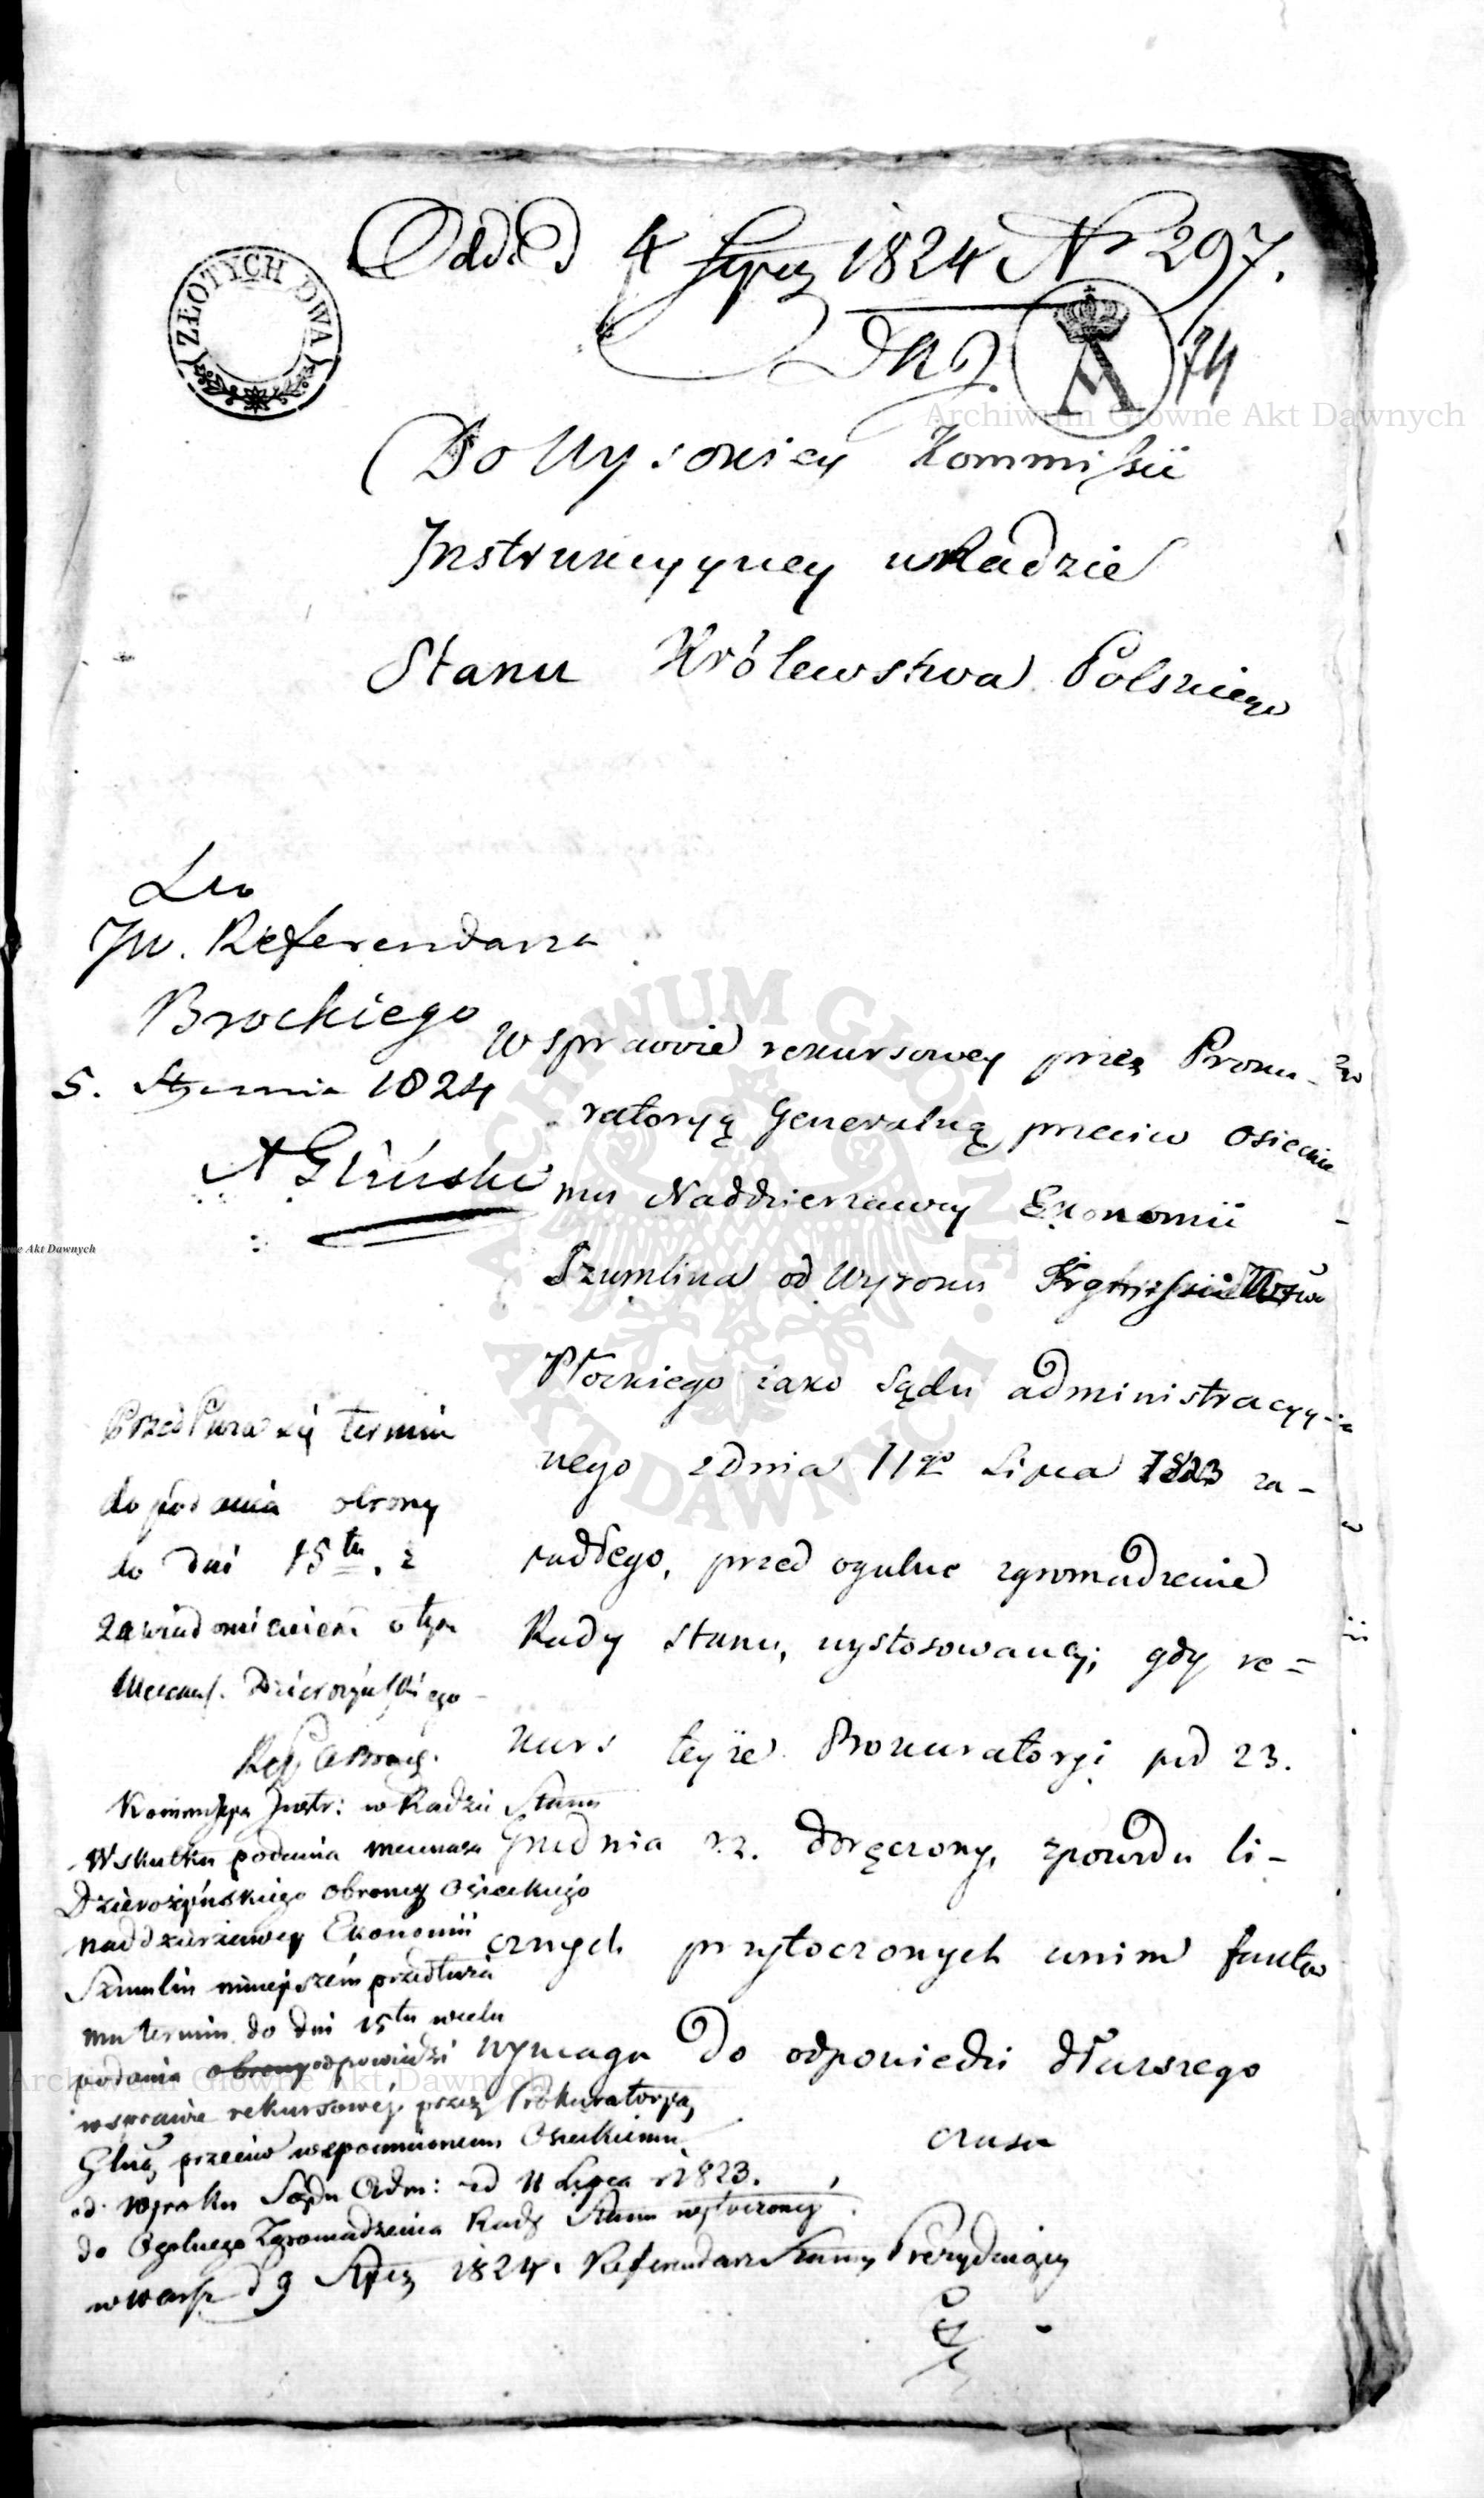 Odd. D 4 Stycz 1824 Nr 297.
ZŁOTYCH DWA
A
74
Do Wysokiey Kommissii
Instrukcyyney w Radzie
Stanu Królewstwa Polskiego
JW. Referendarza
Brockiego
5. Stycznia 1824
A Gliński
W sprawie rekursowey przez Proku-
ratoryą Generalną przeciw Osieckie
mu Naddzierzawcy Ekonomii
Szumlina od Wyroku
Płockiego iako Sądu administracyy-
nego z dnia 11go Lipca 1823 za-
padłego, przed ogulne zgromadzenie
Rady Stanu, wystosowaney; gdy re=
kurs teyże Prokuratoryi pod 23.
Grudnia r.z. doręczony, zpowodu li-
cznych przytoczonych w nim faktów
wymaga do odpowiedzi dłuższego
czasu
Przedłuża się termin
do podania obrony
do dni 15tu. z
zawiadomieniem o tym
Mecenas. Dzierożyńskiego
Kommissya Instr: w Radzie Stanu
W skutku podania mecenasa
Dzierożyńskiego obrońcy Osieckiego
naddzierżawcy Ekonomii
Szumlin ninieyszém przedłuża
mu termin do dni 15tu w celu
podania obrony odpowiedzi
w sprawie rekursowéj przez Prokuratoryą
Glną przeciw wspomnionemu Osieckiemu
od wyroku Sądu Adm: z d 11 Lipca r 1823.
do Ogólnego Zgromadzenia Rady Stanu wytoczonéy.
w Warsz d 9 Stycz 1824. Referendarz Stanu Prezydujący
Archiwum Główne Akt Dawnych
ARCHIWUM GŁÓWNE AKT DAWNYCH
wne Akt Dawnych
Archiwum Główne Akt Dawnych